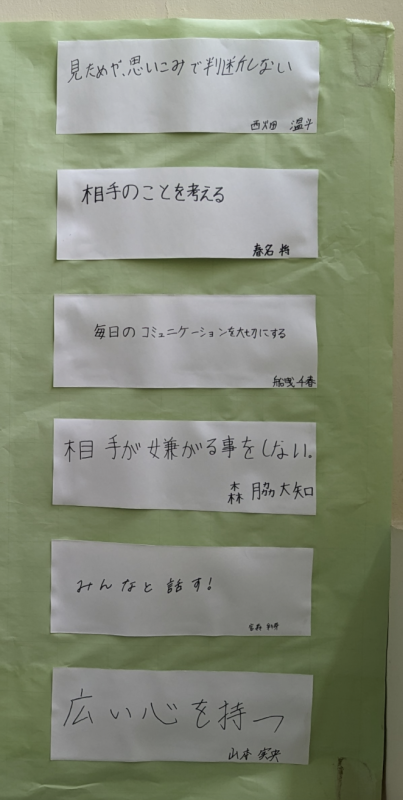 見ためや、思いこみで判断しない
西畑 温斗
相手のことを考える
春名 将
毎日のコミュニケーションを大切にする
船曳 千春
相手が嫌がる事をしない。
森脇 大知
みんなと話す!
広い心を持つ
山本 実央